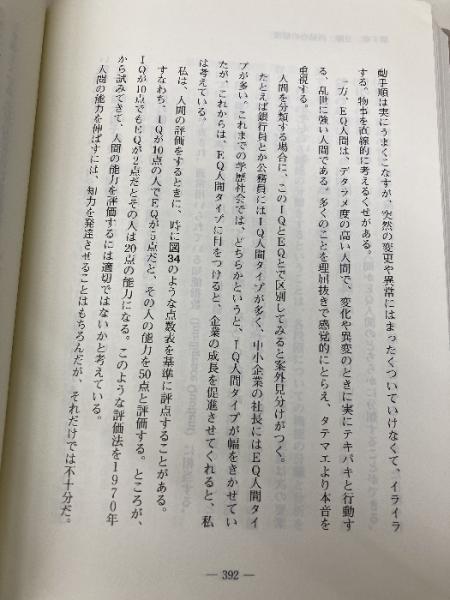 動手順は実にうまくこなすが、突然の変更や異常にはまったくついていけなくて、イライラ
する。物事を直線的に考えるくせがある。
一方、EQ人間は、デタラメ度の高い人間で、変化や異変のときに実にテキパキと行動す
る、乱世に強い人間である。多くのことを理屈抜きで感覚的にとらえ、タテマエより本音を
重視する。
人間を分類する場合に、このIQとEQとで区別してみると案外見分けがつく。
たとえば銀行員とか公務員にはIQ人間タイプが多く、中小企業の社長にはEQ人間タイ
プが多い。これまでの学歴社会では、どちらかというと、IQ人間タイプが幅をきかせてい
たが、これからは、EQ人間タイプに目をつけると、企業の成長を促進させてくれると、私
は考えている。
私は、人間の評価をするときに、時に図34のような点数表を基準に評点することがある。
すなわち、IQが10点の人でEQが5点だと、その人の能力を50点と評価する。ところが、
IQが10点でもEQが2点だとその人は20点の能力になる。このような評価法を1970年
から試みてきて、人間の能力を評価するには適切ではないかと考えている。
人間の能力を伸ばすには、知力を発達させることはもちろんだが、それだけでは不十分だ。
— 392 —